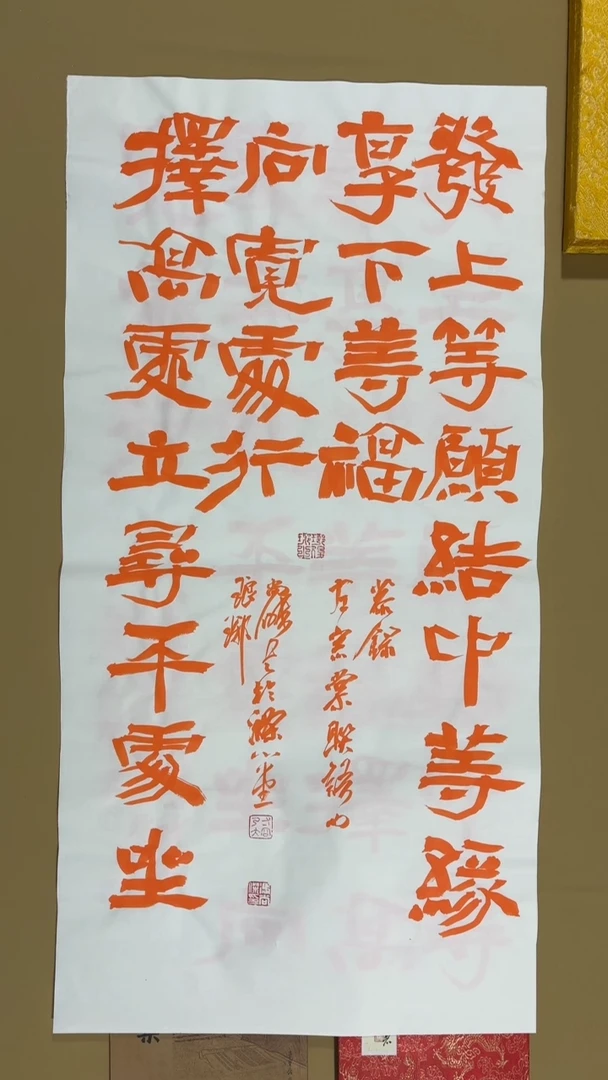 發上等願結中等緣
享下等福
擇高處立尋平處坐
向寬處行
恭錄
左宗棠聯語
於
堂
琅琊